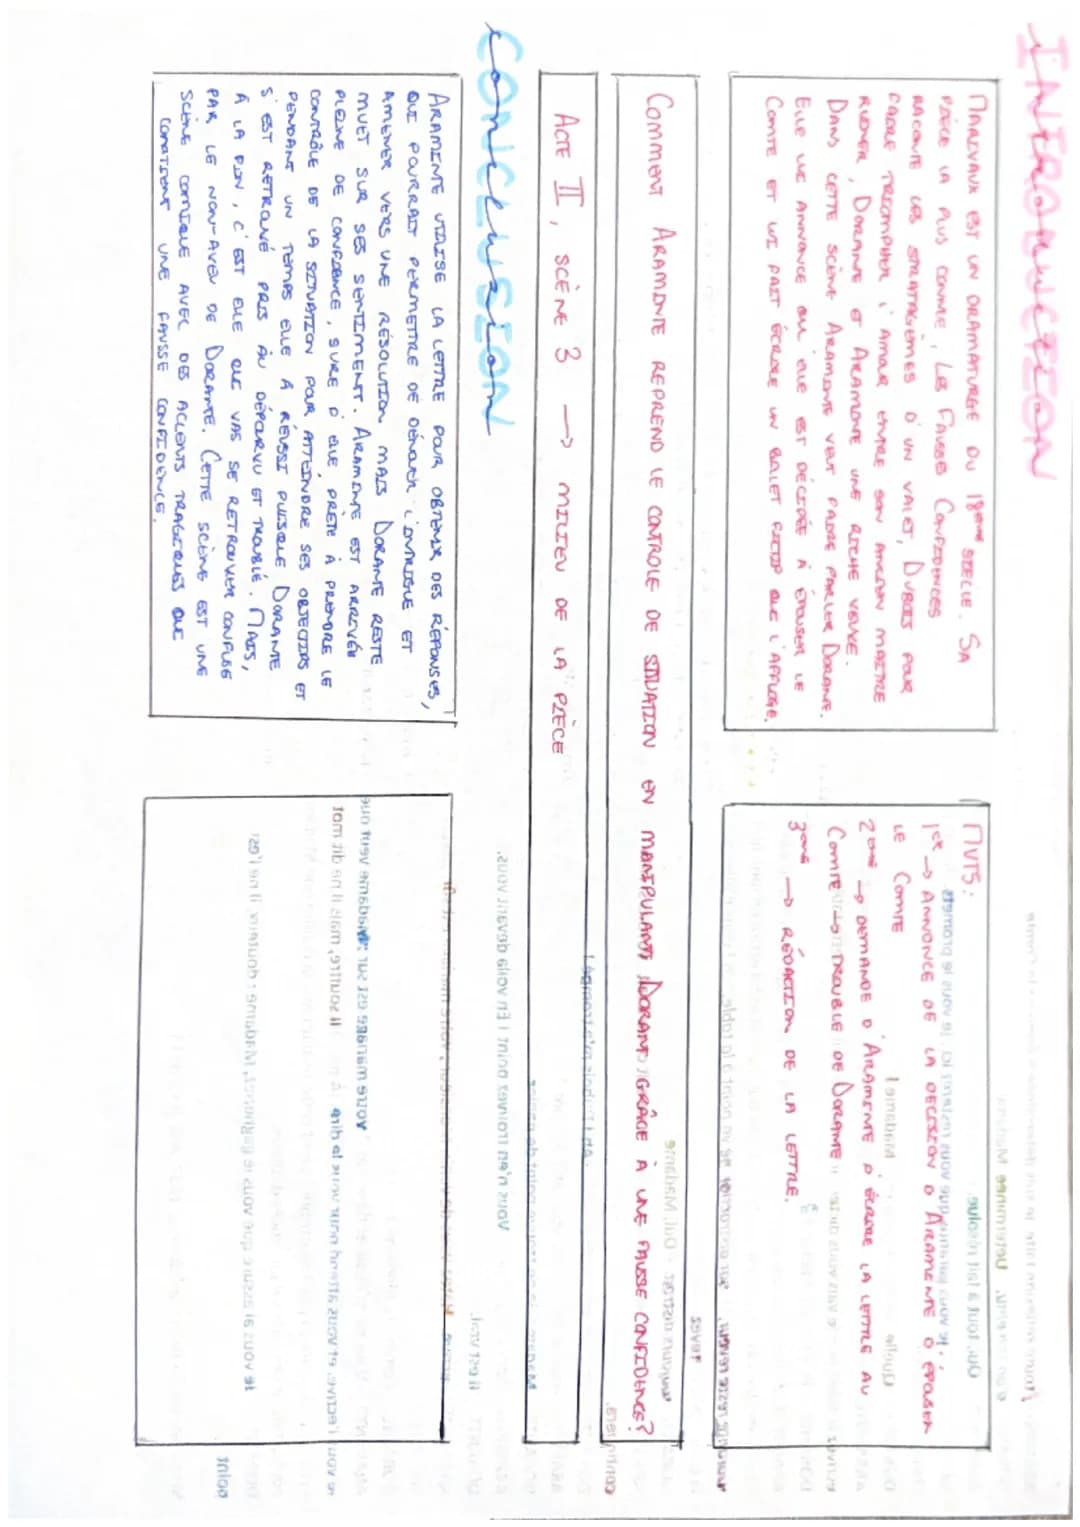 INTRODUCTION
Introduction
MARIVAUX EST UN DRAMATURGE DU 18ème SIÈCLE. SA
PIÈCE LA PLUS CONNUE, LES FAUSSES CONFIDENCES
RACONTE LES STRATAGÈMES D'UN VALET, DUBOIS POUR
FAIRE TRIOMPHER L'AMOUR ENTRE SON ANCIEN MAITRE
RUINER, DORANTE ET ARAMINTE UNE RICHE VEUVE.
DANS CETTE SCÈNE ARAMINTE VEUT FAIRE PARLER DORANTE.
ELLE LUI ANNONCE QU'ELLE EST DÉCIDÉE À ÉPOUSER LE
COMTE ET LUI FAIT ÉCRIRE UN BILLET FICTIF QUI L'AFFLIGE.
MVTS :
1er → ANNONCE DE LA DÉCISION D'ARAMINTE D'ÉPOUSER
LE COMTE
2ème → DEMANDE D'ARAMINTE D'ÉCRIRE LA LETTRE AU
COMTE → TROUBLE DE DORANTE
3ème → RÉDACTION DE LA LETTRE.
COMMENT ARAMINTE REPREND LE CONTROLE DE SITUATION EN MANIPULANT DORANTE GRÂCE À UNE FAUSSE CONFIDENCE?
ACTE II, SCÈNE 3 → MILIEU DE LA PIÈCE
CONCLUSION
Conclusion
ARAMINTE UTILISE LA LETTRE POUR OBTENIR DES RÉPONSES,
QUI POURRAIT PERMETTRE DE DÉNOUER L'INTRIGUE ET
AMENER VERS UNE RÉSOLUTION MAIS DORANTE RESTE
MUET SUR SES SENTIMENT. ARAMINTE EST ARRIVÉE
PLEINE DE CONFIANCE, SURE D'ELLE, PRÊTE À PRENDRE LE
CONTRÔLE DE LA SITUATION POUR ATTEINDRE SES OBJECTIFS ET
PENDANT UN TEMPS ELLE A RÉUSSI PUISQUE DORANTE
S'EST RETROUVÉ PRIS AU DÉPOURVU ET TROUBLÉ. MAIS,
À LA FIN, C'EST ELLE QUI VAS SE RETROUVER CONFUSE
PAR LE NON-AVEU DE DORANTE. CETTE SCÈNE EST UNE
SCÈNE COMIQUE AVEC DES ACCENTS TRAGIQUES QUI
CONTIENT UNE FAUSSE CONFIDENCE.